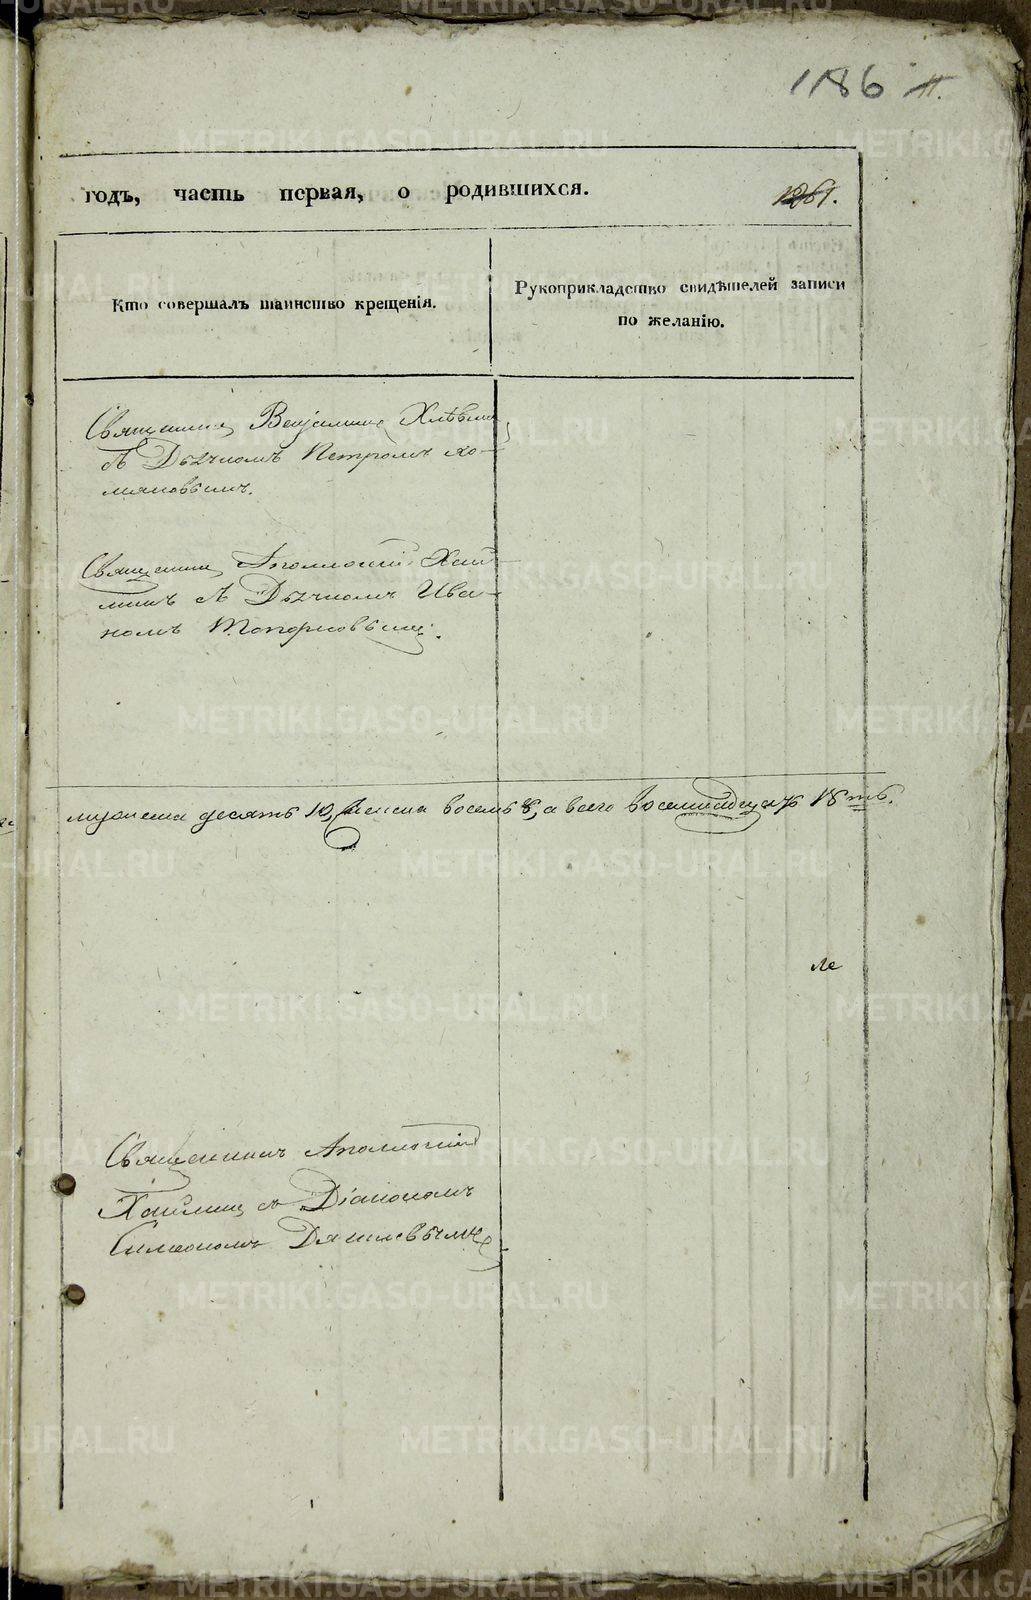 1186
годъ, часть первая, о родившихся.
1261.
Кто совершалъ таинство крещенія.
Рукоприкладство свидѣтелей записи
по желанію.
Священникъ Веніаминъ Хлѣбин
съ Дьячкомъ Петромъ Хо-
мяковымъ.
Священникъ Аполлосій Хай
линъ съ Дьячкомъ Ива-
номъ Топорковымъ.
мужеска десять 10, женска восемь 8, а всего восемнадцать 18ть.
ле
Священникъ Аполлосій
Хайлинъ съ Діакономъ
Симеономъ Даниловымъ
METRIKI.GASO-URAL.RU